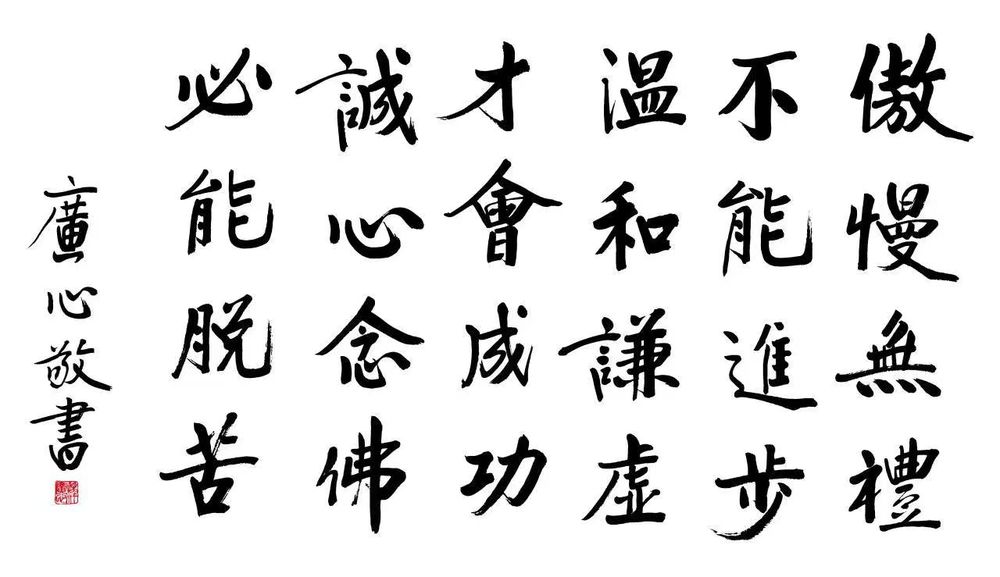 傲慢無禮
不能進步
溫和謙虛
才會成功
誠心念佛
必能脱苦
廣心敬書